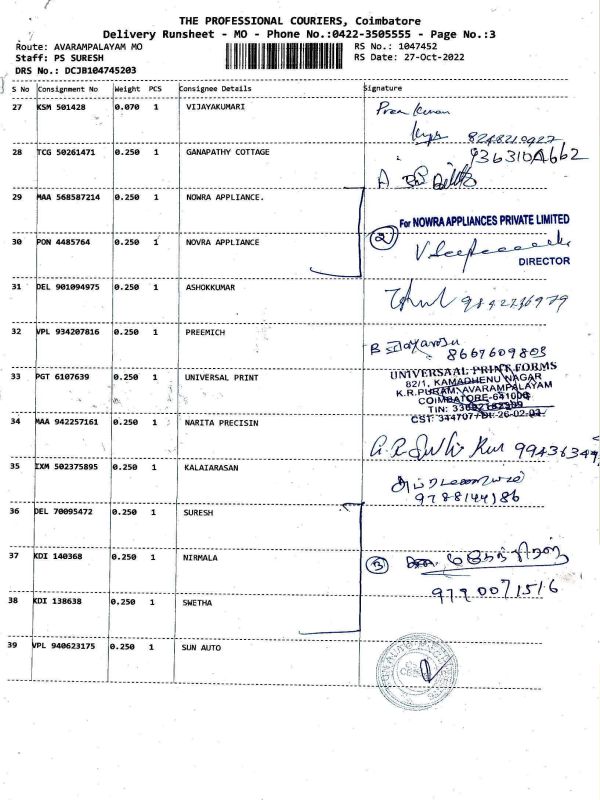 THE PROFESSIONAL COURIERS, Coimbatore
Delivery Runsheet - MO - Phone No.:0422-3505555 - Page No.:3
Route: AVARAMPALAYAM MO
RS No.: 1047452
Staff: PS SURESH
RS Date: 27-Oct-2022
DRS No.: DCJB104745203
S No Consignment No Weight PCS Consignee Details Signature
27 KSM 501428 0.070 1 VIJAYAKUMARI
8248210927
28 TCG 50261471 0.250 1 GANAPATHY COTTAGE
9363104662
29 MAA 568587214 0.250 1 NOWRA APPLIANCE.
For NOWRA APPLIANCES PRIVATE LIMITED
30 PON 4485764 0.250 1 NOVRA APPLIANCE
2
DIRECTOR
31 DEL 901094975 0.250 1 ASHOKKUMAR
9842236979
32 VPL 934207816 0.250 1 PREEMICH
8667609803
33 PGT 6107639 0.250 1 UNIVERSAL PRINT
UNIVERSAAL PRINT FORMS
82/1, KAMADHENU NAGAR
K.R.PURAM, AVARAMPALAYAM
COIMBATORE-641006
TIN:
CST: 344707
34 MAA 942257161 0.250 1 NARITA PRECISIN
35 IXM 502375895 0.250 1 KALAIARASAN
9788144186
36 DEL 70095472 0.250 1 SURESH
37 KDI 140368 0.250 1 NIRMALA
3
38 KDI 138638 0.250 1 SWETHA
9790071516
39 VPL 940623175 0.250 1 SUN AUTO